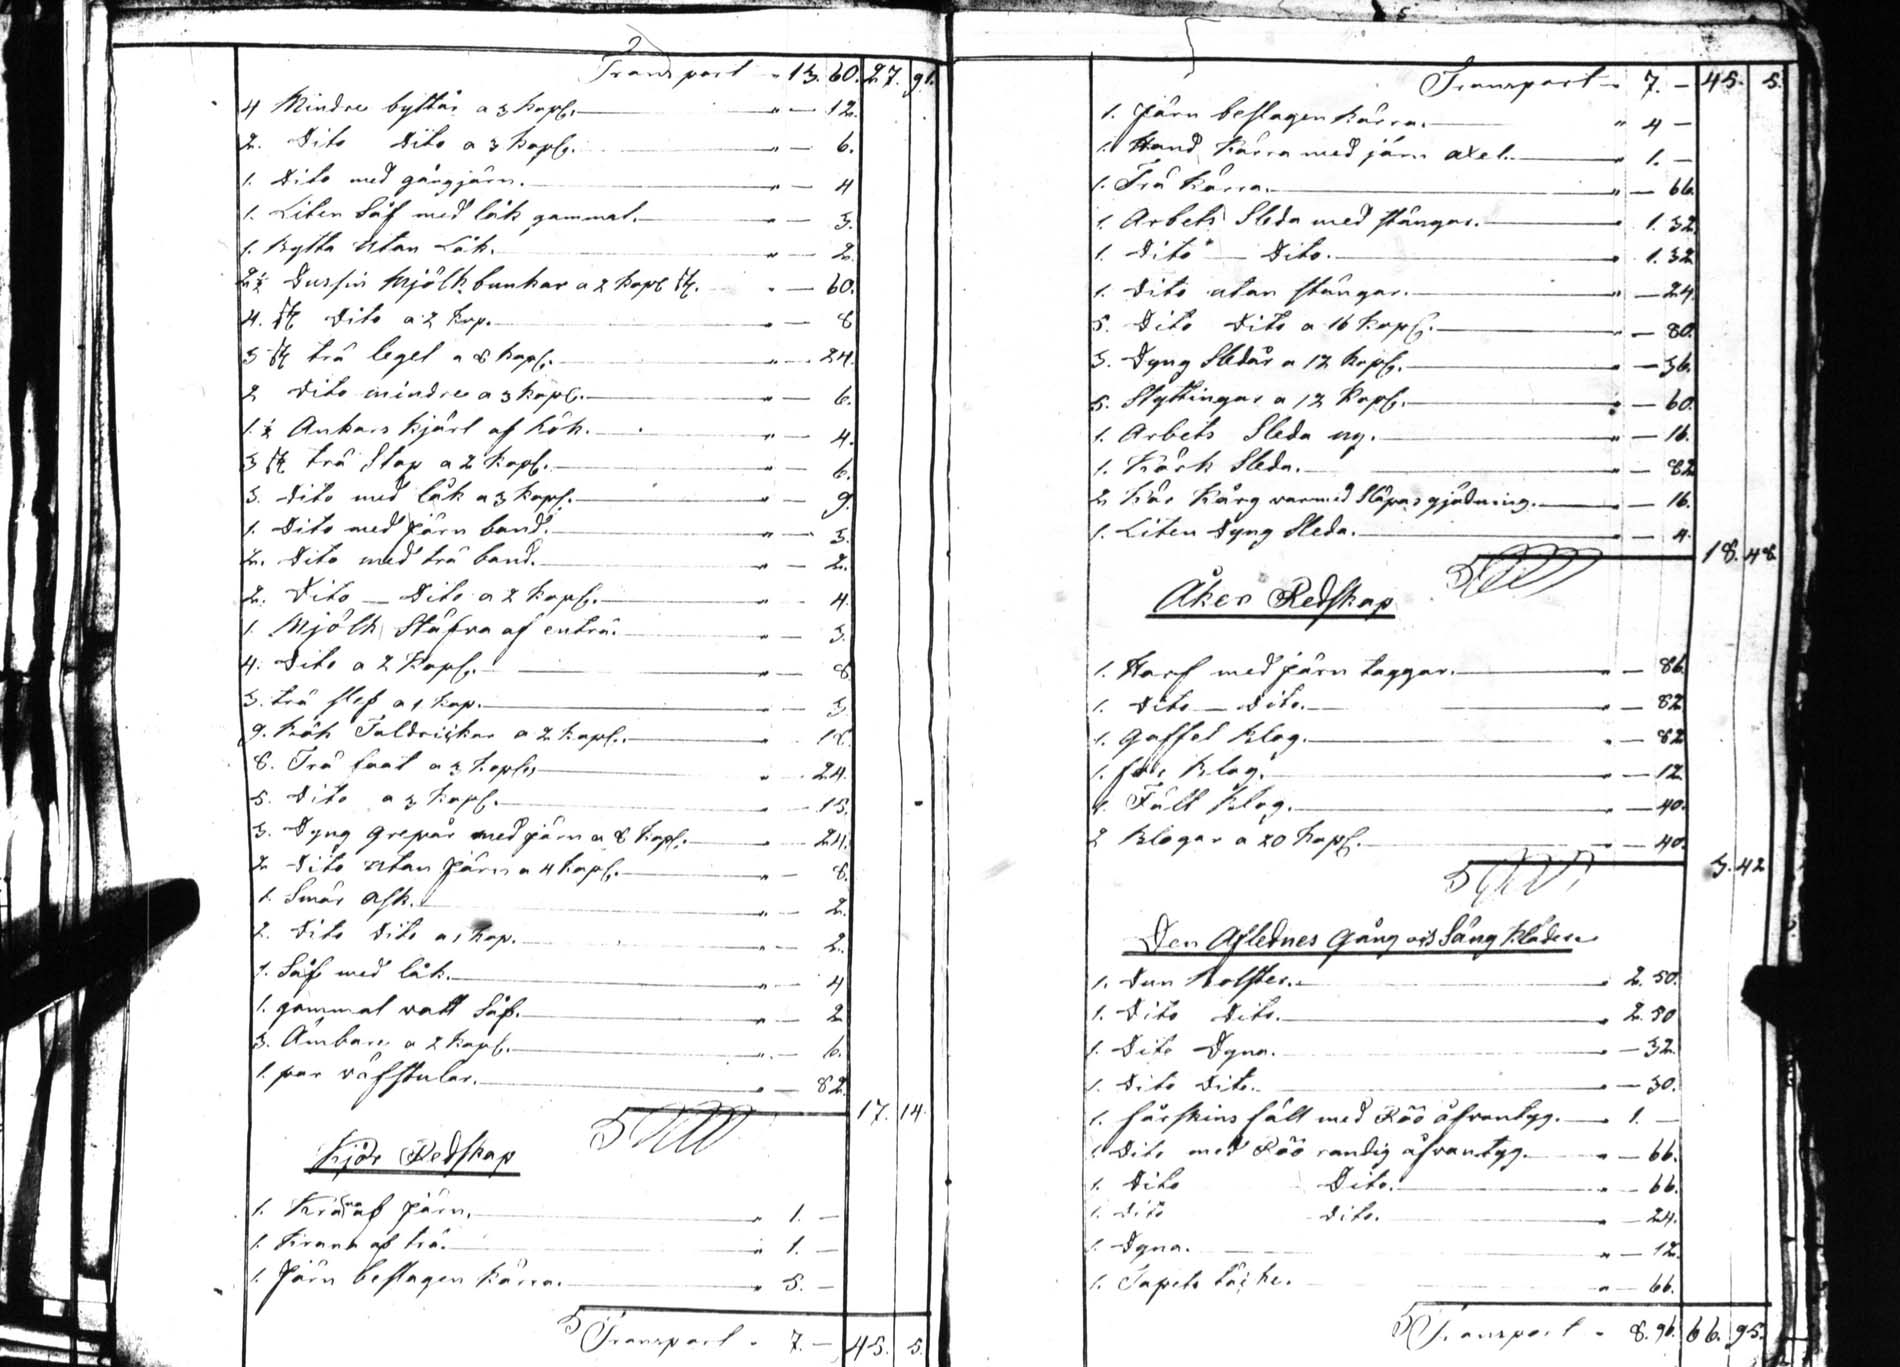 Transport " 13. 60. 27. 91.
4 Mindre byttår a 3 kop. " — 12.
2. Dito Dito a 3 kop. " — 6.
1. Dito med gångjärn. " — 4
1. Liten Såf med låk gammal. " — 3.
1. Bytta utan Låk. " — 2.
2½ Dussin Mjölkbunkar a 2 kop " — 60.
4. Dito a 2 kop. " — 8
3 trä legel a 8 kop. " — 24.
2 Dito mindre a 3 kop. " — 6.
1. ½ Ankars kjärl af bök. " — 4.
3 trä Stop a 2 kop. " — 6.
3. Dito med låk a 3 kop. " — 9.
1. Dito med Järn band. " — 3.
2. Dito med trä band. " — 2.
2. Dito — Dito a 2 kop. " — 4.
1. Mjölk Stäfva af enträ. " — 3.
4. Dito a 2 Kop. " — 8
3. trä slef a 1 kop. " — 3
9. Bök Taldrickar a 2 kop. " 18.
8. Trä faat a 3 kop. " 24.
5. Dito a 3 kop. " 15.
3. Dyng grepar med järn a 8 kop. " 24.
2 Dito utan järn a 4 kop. " — 8.
1. Smör Ask. " — 2.
2. Dito Dito a 1 kop. " — 2.
1. Såf med låk. " — 4
1. gammal vatt Såf. " — 2
3. Ämbare a 2 kop. " — 6.
1. par väfstular. " — 82.
17. 14.
Kjör Redskap
1. af Järn. " 1. —
1. af trä. " 1. —
1 Järn beslagen kärra. " 5. —
Transport " 7. — 45. 5.
Transport " 7. — 45. 5.
1. Järn beslagen kärra. " 4 —
1. Hand kärra med järn axel. " 1. —
1. Trä kärra. " — 66.
1. Arbets Sleda med stänger. " 1. 32
1. Dito — Dito. " 1. 32
1. Dito utan stänger. " — 24
5. Dito Dito a 16 kop. " — 80.
3. Dyng Sledår a 12 kop. " — 36.
5. Styttingar a 12 kop. " — 60.
1. Arbets Sleda ny. " — 16.
1. Sleda. " — 82
2 Kör Korg varmed släpas gjödning. " — 16.
1. Liten Dyng Sleda. " — 4.
18. 48
Åker Redskap
1. Harf med järn taggar. " — 86.
1. Dito — Dito. " — 82
1. Gaffel Plog. " — 82
1. Plog. " — 12
1. Fält Plog. " — 40.
2 Plogar a 20 kop. " — 40.
3. 42
Den Aflednes Gång och Säng Kläder
1. Dun Bolster. " 2. 50.
1. Dito Dito. " 2. 50
1. Dito Dyna. " — 32
1. Dito Dito. " — 30.
1. fårskins fäll med Röd åfvantyg. " 1. —
1 Dito med Röd randig åfvantyg. " — 66.
1. Dito Dito. " — 66.
1. Dito Dito. " — 24.
1. Dyna. " — 12.
1. Tapets täcke. " — 66.
Transport " 8. 96. 66. 95.